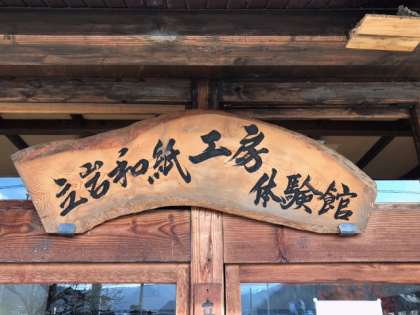 立岩和紙工房
体験館